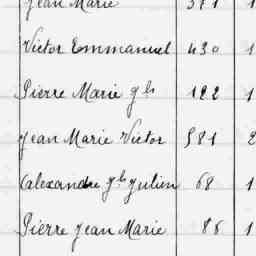 Jean Marie 371 1
Victor Emmanuel 430 1
Pierre Marie gls 122 1
Jean Marie Victor 581 2
Calexandre gls Julien 68 1
Pierre Jean Marie 86 1